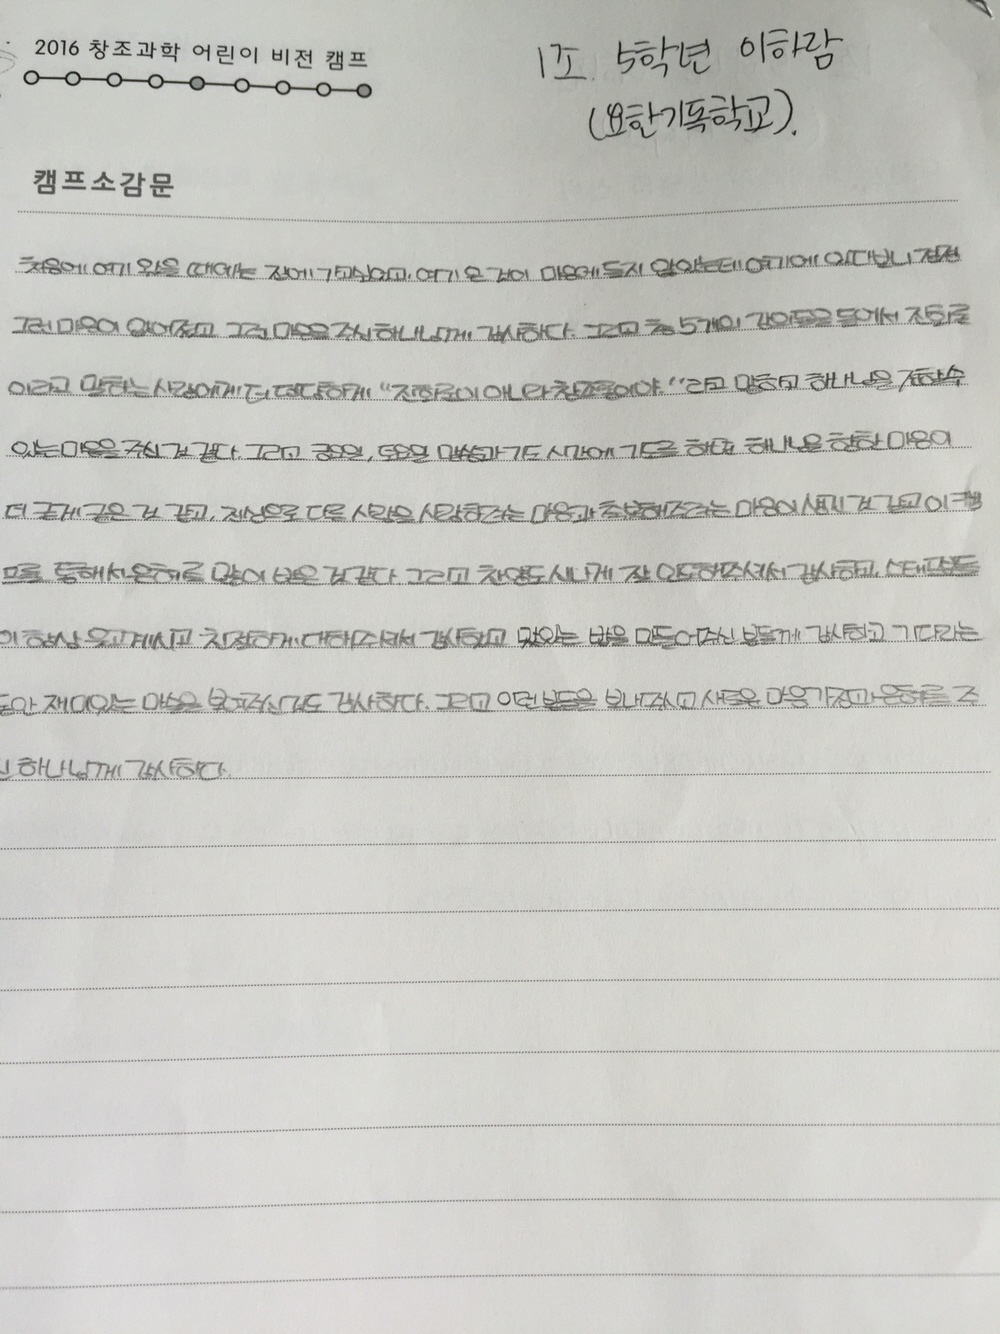 2016 창조과학 어린이 비전 캠프
1조. 5학년 이하람
(요한기독학교).
캠프소감문
처음에 여기 왔을 때에는 집에 가고싶었고, 여기 온 것이 마음에 들지 않았는데 여기에 있다보니 점점
그런 마음이 없어졌고 그런 마음을 주신 하나님께 감사하다. 그리고 총 5개의 강의들을 들어서 진화론
이라고 말하는 사람에게 더 떳떳하게 "진화론이 아니라 창조론이야."라고 말하고 하나님을 전할 수
있는 마음을 주신 것 같다. 그리고 금요일, 토요일 말씀과 기도 시간에 기도를 하고 하나님을 향한 마음이
더 굳게 굳은 것 같고, 진심으로 다른 사람을 사랑하려는 마음과 축복해주려는 마음이 생긴 것 같고 이 캠
프를 통해서 은혜를 많이 받은 것 같다. 그리고 찬양도 신나게 잘 인도해주셔서 감사하고, 스태프분들
이 항상 웃고계시고 친절하게 대해주셔서 감사하고 맛있는 밥을 만들어주신 분들께 감사하고 기다리는
동안 재미있는 마술을 보여주신 것도 감사하다. 그리고 이런 분들을 보내주시고 새로운 마음가짐과 은혜를 주
신 하나님께 감사하다.